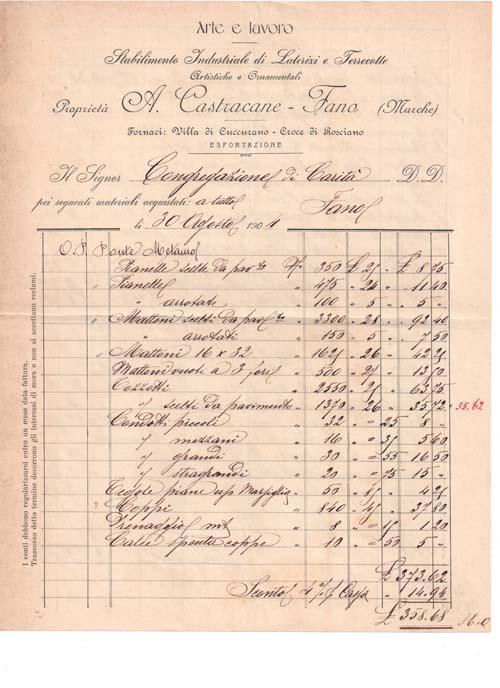 Arte e lavoro
Stabilimento Industriale di Laterizi e Terrecotte
Artistiche e Ornamentali
Proprietà A. Castracane - Fano (Marche)
Fornaci: Villa di Cuccurano - Croce di Rosciano
ESPORTAZIONE
Il Signor Congregazione di Carità D. D.
pei seguenti materiali acquistati: a tutto Fano
li 30 Agosto 1904
O. P. Ponte Metauro
Pianelle scelte da pav.to N° 350 £ 25 £ 8 75
Pianelle 475 " 24 " 11 40
" arrotate " 100 " 5 " 5 "
Mattoni scelti da pav.to " 3300 " 28 " 92 40
" arrotati " 150 " 5 " 7 50
Mattoni 16 x 32 " 1625 " 26 " 42 25
Mattoni vuoti a 3 fori " 500 " 27 " 13 50
Cozzotti " 2550 " 25 " 63 75
" scelti da pavimento " 1370 " 26 " 35 72 " 35,62
Condotti piccoli " 32 " = 25 8 "
" mezzani " 16 " = 35 5 60
" grandi " 30 " = 55 16 50
" stragrandi " 20 " = 75 15 "
Tegole piane uso Marsiglia " 50 " 85 " 4 25
Coppi " 840 " 45 " 37 80
Drenaggio mt " 8 " = 15 1 20
Calce spenta coppe " 10 " = 50 5 "
£ 373.62
Sconto 4 % Cassa " 14.94
£ 358.68
I conti debbono regolarizzarsi entro un mese data fattura.
Trascorso detto termine decorrono gli interessi di mora e non si accettano reclami.